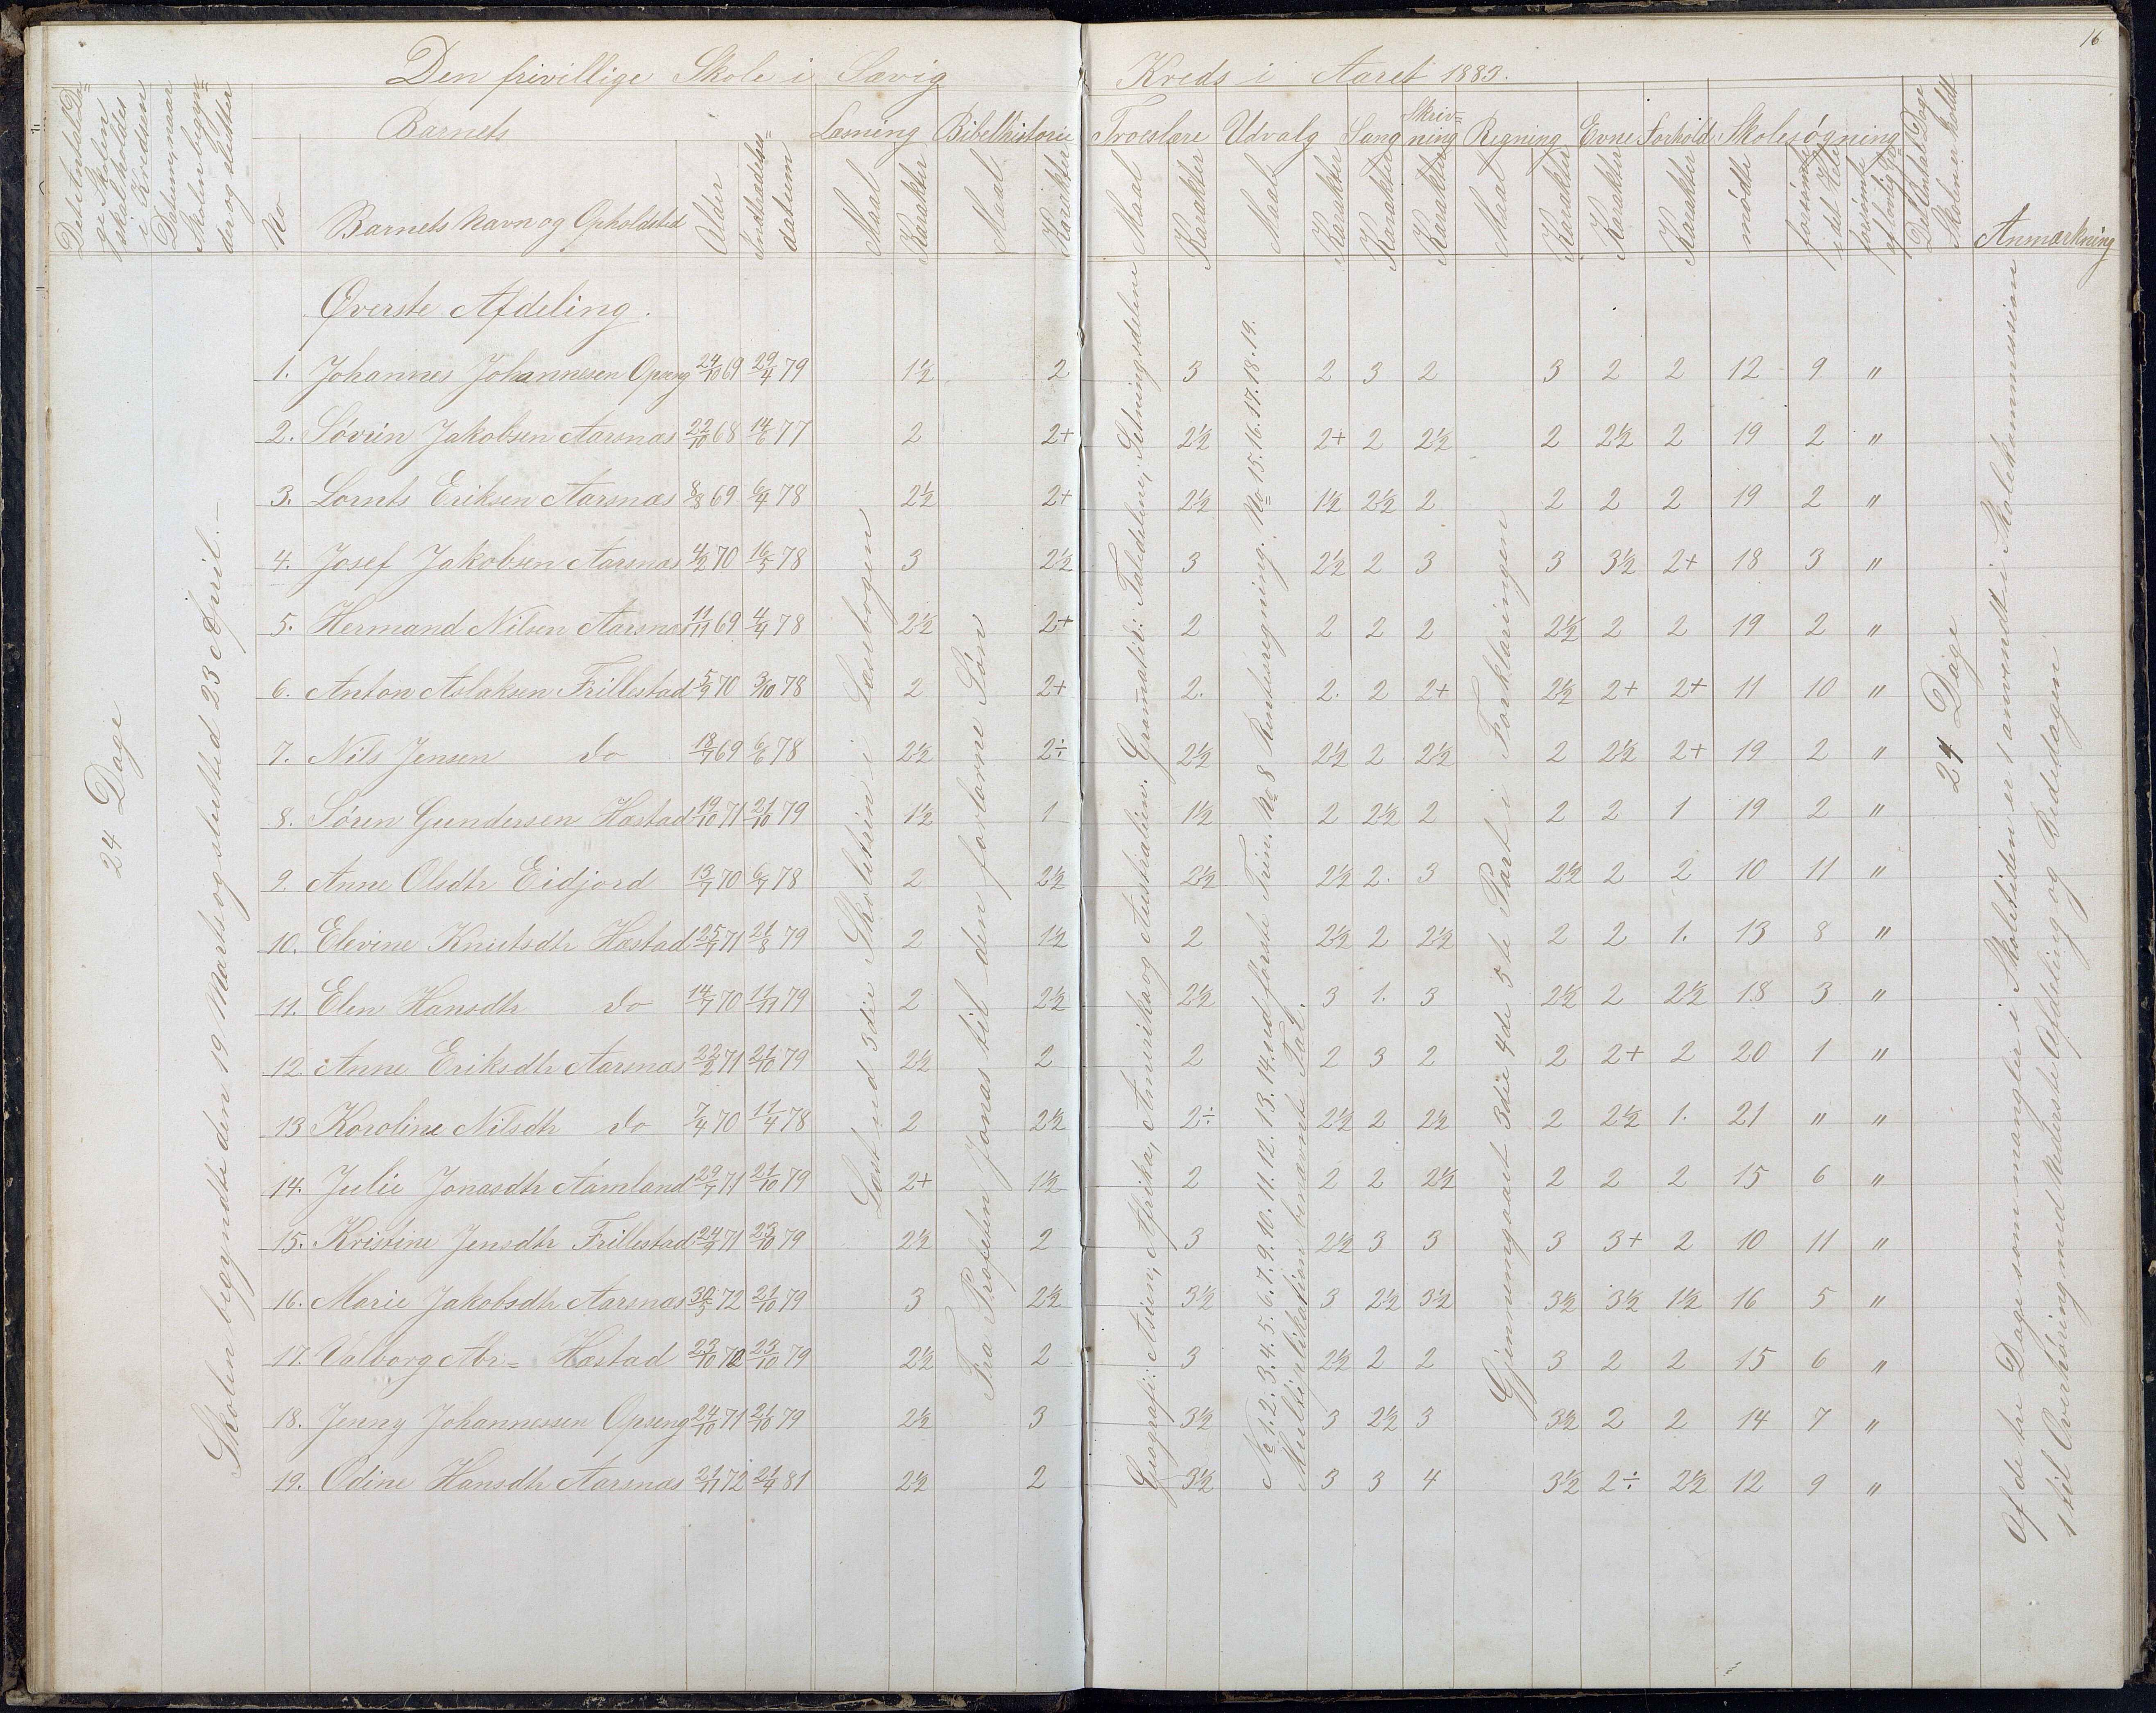 16
Den frivillige Skole i Sævig Kreds i Aaret 1883.
Det Antal Dage Skolen skal holdes i Kredsen
Datum, naar Skolen begynder og slutter
Barnets
Læsning Bibelhistorie Troeslære Udvalg Sang Skrivning Regning Evne Forhold Skolesøgning
Det Antal Dage Skolen er holdt
Anmærkning
No Barnets Navn og Opholdsted Alder Indtrædelsesdatum Maal Karakter Maal Karakter Maal Karakter Maal Karakter Karakter Karakter Maal Karakter Karakter Karakter mødte forsømte i det Hele forsømte af lovlig
24 Dage
Skolen begyndte den 19 Marts og sluttede 23 April.
Øverste Afdeling.
1. Johannes Johannesen Opseng 24/10 69 29/4 79 1½ 2 3 2 3 2 3 2 2 12 9 "
2. Søvrin Jakobsen Aarsnæs 22/10 68 14/6 77 2 2+ 2½ 2+ 2 2½ 2 2½ 2 19 2 "
3. Lornts Eriksen Aarsnæs 8/8 69 6/4 78 2½ 2+ 2½ 1½ 2½ 2 2 2 2 19 2 "
4. Josef Jakobsen Aarsnæs 4/2 70 16/5 78 3 2½ 3 2½ 2 3 3 3½ 2+ 18 3 "
5. Hermand Nilsen Aarsnæs 11/11 69 4/4 78 2½ 2+ 2 2 2 2 2½ 2 2 19 2 "
6. Anton Aslaksen Frillestad 5/9 70 3/10 78 2 2+ 2. 2. 2 2+ 2½ 2+ 2+ 11 10 "
7. Nils Jensen do 18/7 69 6/6 78 2½ 2÷ 2½ 2½ 2 2½ 2 2½ 2+ 19 2 "
8. Søren Gundersen Hæstad 19/10 71 21/10 79 1½ 1 1½ 2 2½ 2 2 2 1 19 2 "
9. Anne Olsdtr Eidjord 13/7 70 6/7 78 2 2½ 2½ 2½ 2. 3 2½ 2 2 10 11 "
10. Elevine Knutsdtr Hæstad 25/7 71 21/8 79 2 1½ 2 2½ 2 2½ 2 2 1. 13 8 "
11. Elen Hansdtr do 14/7 70 11/11 79 2 2½ 2½ 3 1. 3 2½ 2 2½ 18 3 "
12. Anne Eriksdtr Aarsnæs 22/2 71 21/10 79 2½ 2 2 2 3 2 2 2+ 2 20 1 "
13 Karoline Nilsdtr do 7/4 70 11/4 78 2 2½ 2÷ 2½ 2 2½ 2 2½ 1. 21 " "
14. Julie Jonasdtr Aamland 29/7 71 21/10 79 2+ 1½ 2 2 2 2½ 2 2 2 15 6 "
15. Kristine Jensdtr Frillestad 24/9 71 23/10 79 2½ 2 3 2½ 3 3 3 3+ 2 10 11 "
16. Marie Jakobsdtr Aarsnæs 30/5 72 21/10 79 3 2½ 3½ 3 2½ 3½ 3½ 3½ 1½ 16 5 "
17. Valborg Abr= Hæstad 23/10 72 23/10 79 2½ 2 3 2½ 2 2 3 2 2 15 6 "
18. Jenny Johannessen Opseng 24/10 71 21/10 79 2½ 3 3½ 3 2½ 3 3½ 2 2 14 7 "
19. Odine Hansdtr Aarsnæs 21/11 72 21/4 81 2½ 2 3½ 3 3 4 3½ 2÷ 2½ 12 9 "
Læst ud 3die Skoletrin i Læsebogen
Fra Profeten Jonas til den fortorne Søn
Geografi: Asien, Afrika, Amerika og Australien. Gramatik: Taledeling, Setningsdelene
No 1. 2. 3. 4. 5. 6. 7. 9. 10. 11. 12. 13. 14. ud første Trin. No 8 Renteregning. No 15. 16. 17. 18. 19.
Multiplikation benævnte Tal.
Gjennemgaaet 3die 4de 5te Part i Forklaringen
24 Dage
Af de tre Dage som mangler i Skoletiden er 1 anvendt i Skolekommission
1 til Overhøring med Nederste Afdeling og Bededagen